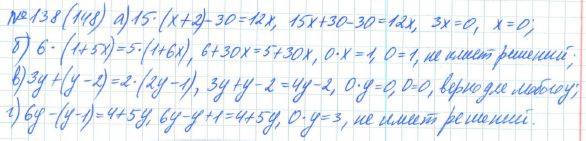 №138(148) а) 15·(x+2)-30=12x, 15x+30-30=12x, 3x=0, x=0;
б) 6·(1+5x)=5·(1+6x), 6+30x=5+30x, 0·x=1, 0=1, не имеет решений;
в) 3y+(y-2)=2·(2y-1), 3y+y-2=4y-2, 0·y=0, 0=0, верно для любого y;
г) 6y-(y-1)=4+5y, 6y-y+1=4+5y, 0·y=3, не имеет решений.